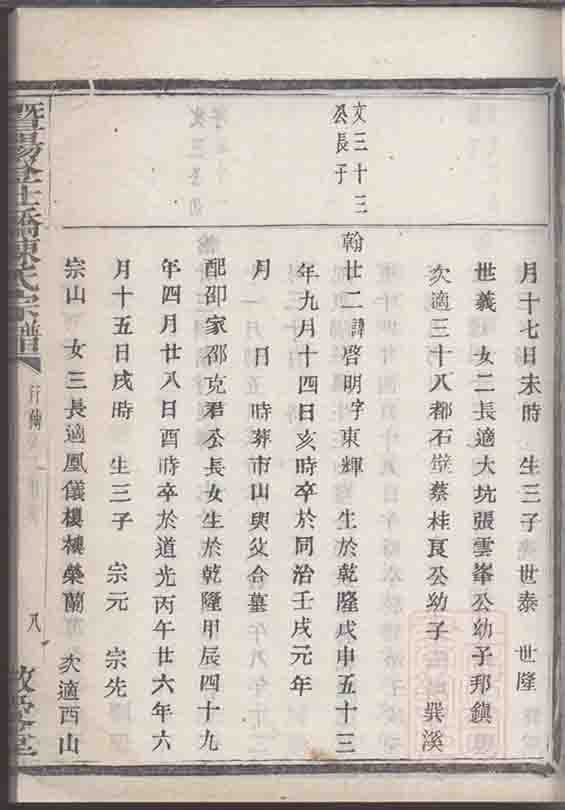 月十七日未時　生三子　世泰　世隆
世義　女二長適大坑張雲峯公幼子邦鎮
次適三十八都石壁蔡桂良公幼子　巽溪
文三十三
公長子
翰廿二諱啓明字東輝　生於乾隆戊申五十三
年九月十四日亥時卒於同治壬戌元年
月　日　時葬市山與父合墓
配邵家邵克君公長女生於乾隆甲辰四十九
年四月廿八日酉時卒於道光丙午廿六年六
月十五日戌時　生三子　宗元　宗先
宗山　女三長適鳳儀樓樓榮蘭　次適西山
陳氏宗譜
行傳
八
敬愛堂